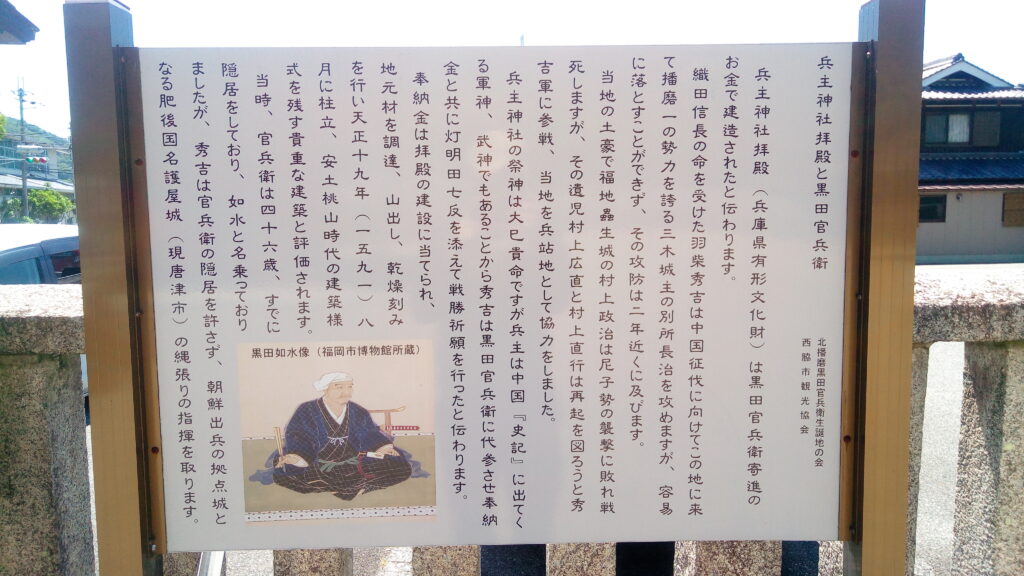 兵主神社拝殿と黒田官兵衛
北播磨黒田官兵衛生誕地の会
西脇市観光協会
兵主神社拝殿（兵庫県有形文化財）は黒田官兵衛寄進の
お金で建造されたと伝わります。
織田信長の命を受けた羽柴秀吉は中国征伐に向けてこの地に来
て播磨一の勢力を誇る三木城主の別所長治を攻めますが、容易
に落とすことができず、その攻防は二年近くに及びます。
当地の土豪で福地蟲生城の村上政治は尼子勢の襲撃に敗れ戦
死しますが、その遺児村上広直と村上直行は再起を図ろうと秀
吉軍に参戦、当地を兵站地として協力をしました。
兵主神社の祭神は大己貴命ですが兵主は中国『史記』に出てく
る軍神、武神でもあることから秀吉は黒田官兵衛に代参させ奉納
金と共に灯明田七反を添えて戦勝祈願を行ったと伝わります。
奉納金は拝殿の建設に当てられ、
地元材を調達、山出し、乾燥刻み
を行い天正十九年（一五九一）八
月に柱立、安土桃山時代の建築様
式を残す貴重な建築と評価されます。
当時、官兵衛は四十六歳、すでに
隠居をしており、如水と名乗っており
ましたが、秀吉は官兵衛の隠居を許さず、朝鮮出兵の拠点城と
なる肥後国名護屋城（現唐津市）の縄張りの指揮を取ります。
黒田如水像（福岡市博物館所蔵）